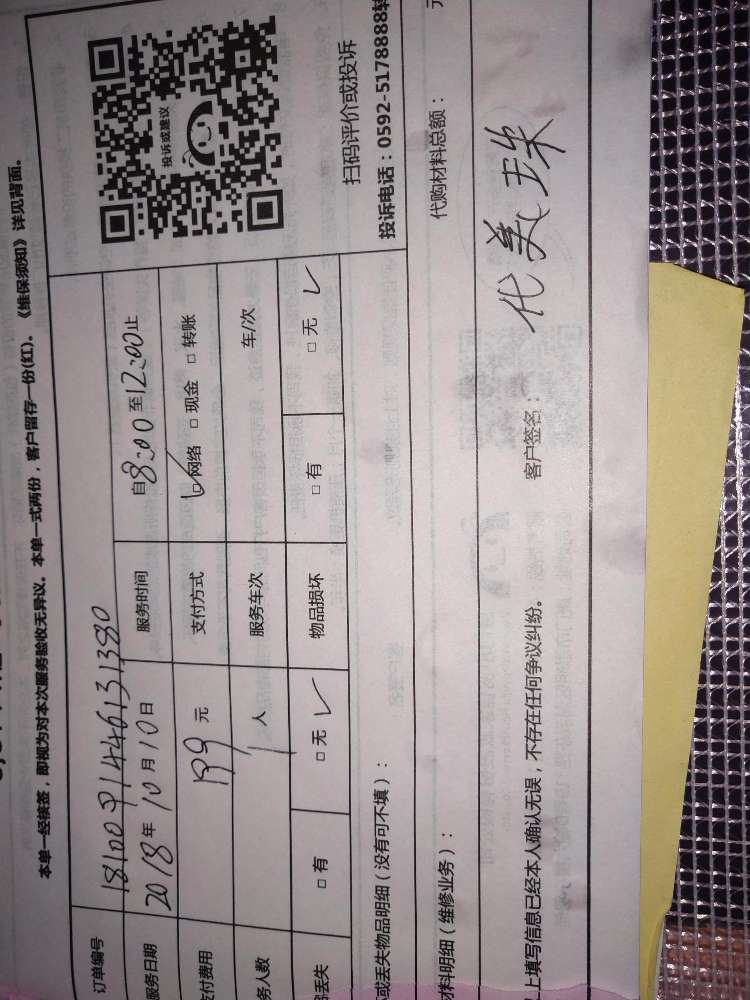 本单一经核签，即视为对本次服务验收无异议。本单一式两份，客户留存一份(红)。《维保须知》详见背面。
订单编号 1810091446131380
服务日期 2018年10月10日 服务时间 自8:00至12:00止
付费用 199元 支付方式 □网络 □现金 □转账
务人数 1人 服务车次 车/次
丢失 □有 □无 ✓ 物品损坏 □有 □无 ✓
投诉或建议
扫码评价或投诉
投诉电话：0592-5178888转
或丢失物品明细（没有可不填）：
材料明细（维修业务）： 代购材料总额： 元
上填写信息已经本人确认无误，不存在任何争议纠纷。 客户签名：代美珠